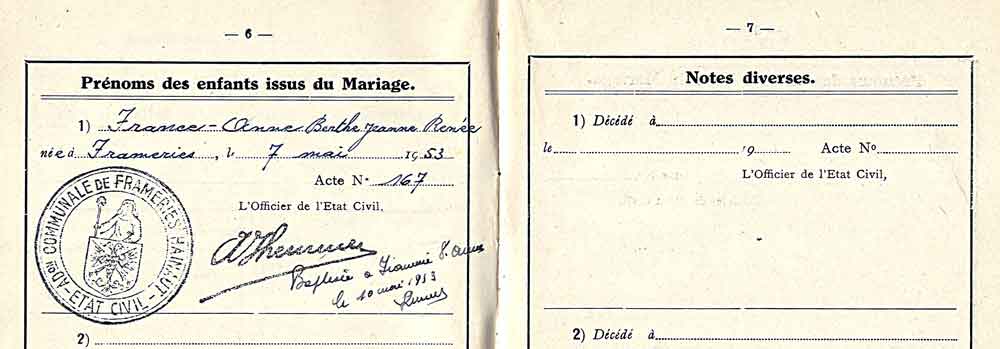 — 6 —
Prénoms des enfants issus du Mariage.
1) France-Anne Berthe Jeanne Renée
née à Frameries, le 7 mai 1953
Acte N° 167
L'Officier de l'Etat Civil,
ADon COMMUNALE DE FRAMERIES HAINAUT - ETAT CIVIL -
Baptisée à
le 10 mai 1953
2)
— 7 —
Notes diverses.
1) Décédé à
le 19 Acte No
L'Officier de l'Etat Civil,
2) Décédé à